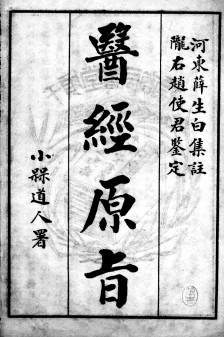 河東薛生白集註
隴右趙使君鑒定
醫經原旨
小槑道人署